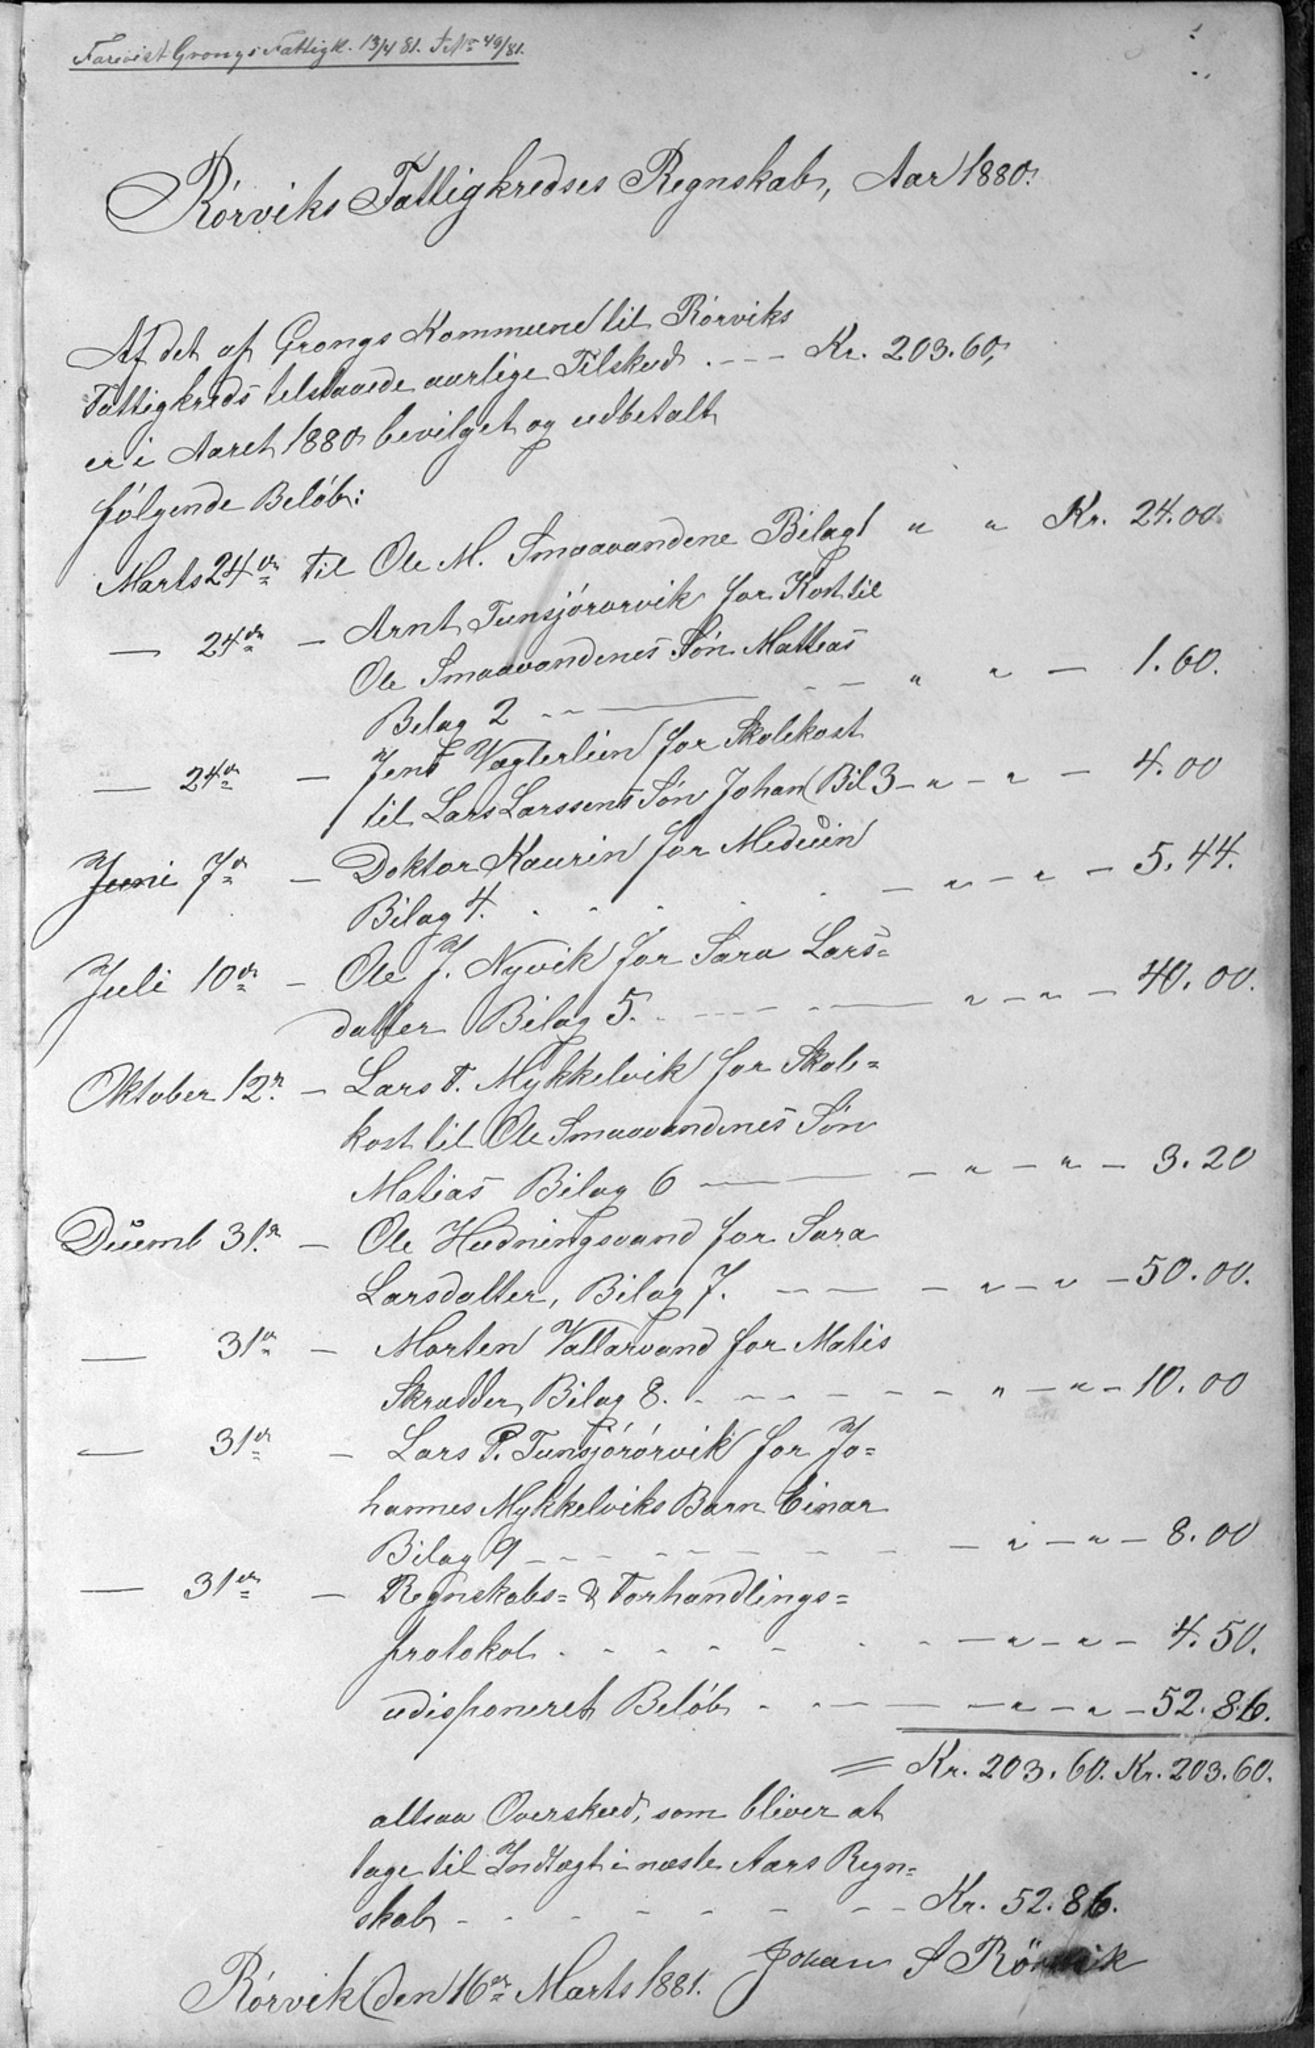 Forevist Grongs Fattigk. 13/4 81. J No 49/81.
Rórviks Fattigkredses Regnskab, Aar 1880.
Af det af Grongs Kommune til Rórviks
Fattigkreds tilstaaede aarlige Tilskud . - - - Kr. 203.60,
er i Aaret 1880 bevilget og udbetalt
følgende Beløb:
Marts 24de til Ole M. Smaavandene Bilag 1 " " Kr. 24.00
— 24de — Arnt Tunsjórórvik for Kost til
Ole Smaavandenes Søn Matteas
Belag 2 - - — - — " " — 1.60.
— 24de — Jens Vægterlien for Skolekost
til Lars Larssens Søn Johan (Bil 3 — " — " — 4.00
Juni 7de — Doktor Kaurin for Medicin
Bilag 4. . . . . . — " — " — 5.44.
Juli 10de — Ole J. Nyvik for Sara Lars=
datter Bilag 5. - - - — " — " — 40.00.
Oktober 12te — Lars T. Mykkelvik for Skole=
kost til Ole Smaavandenes Søn
Matias Bilag 6 — — — " — " — 3.20
Decemb 31te — Ole Hudningsvand for Sara
Larsdatter, Bilag 7. - - — — " — " — 50.00.
— 31te — Morten Vallarvand for Matis
Skrædder, Bilag 8. - - - - - - " — " — 10.00
— 31te — Lars P. Tunsjórórvik for Jo=
hannes Mykkelviks Barn Einar
Bilag 9 - - - - - - — " — " — 8.00
— 31te — Regnskabs= & Forhandlings=
protokol . . . . . . . — " — " — 4.50.
udisponeret Beløb . - - — — " — " — 52.86.
= Kr. 203.60. Kr. 203.60.
altsaa Overskud, som bliver at
tage til Indtægt i næste Aars Regn=
skab - - - - - - - Kr. 52.86.
Rórvik den 16de Marts 1881. Johan S Rörvik